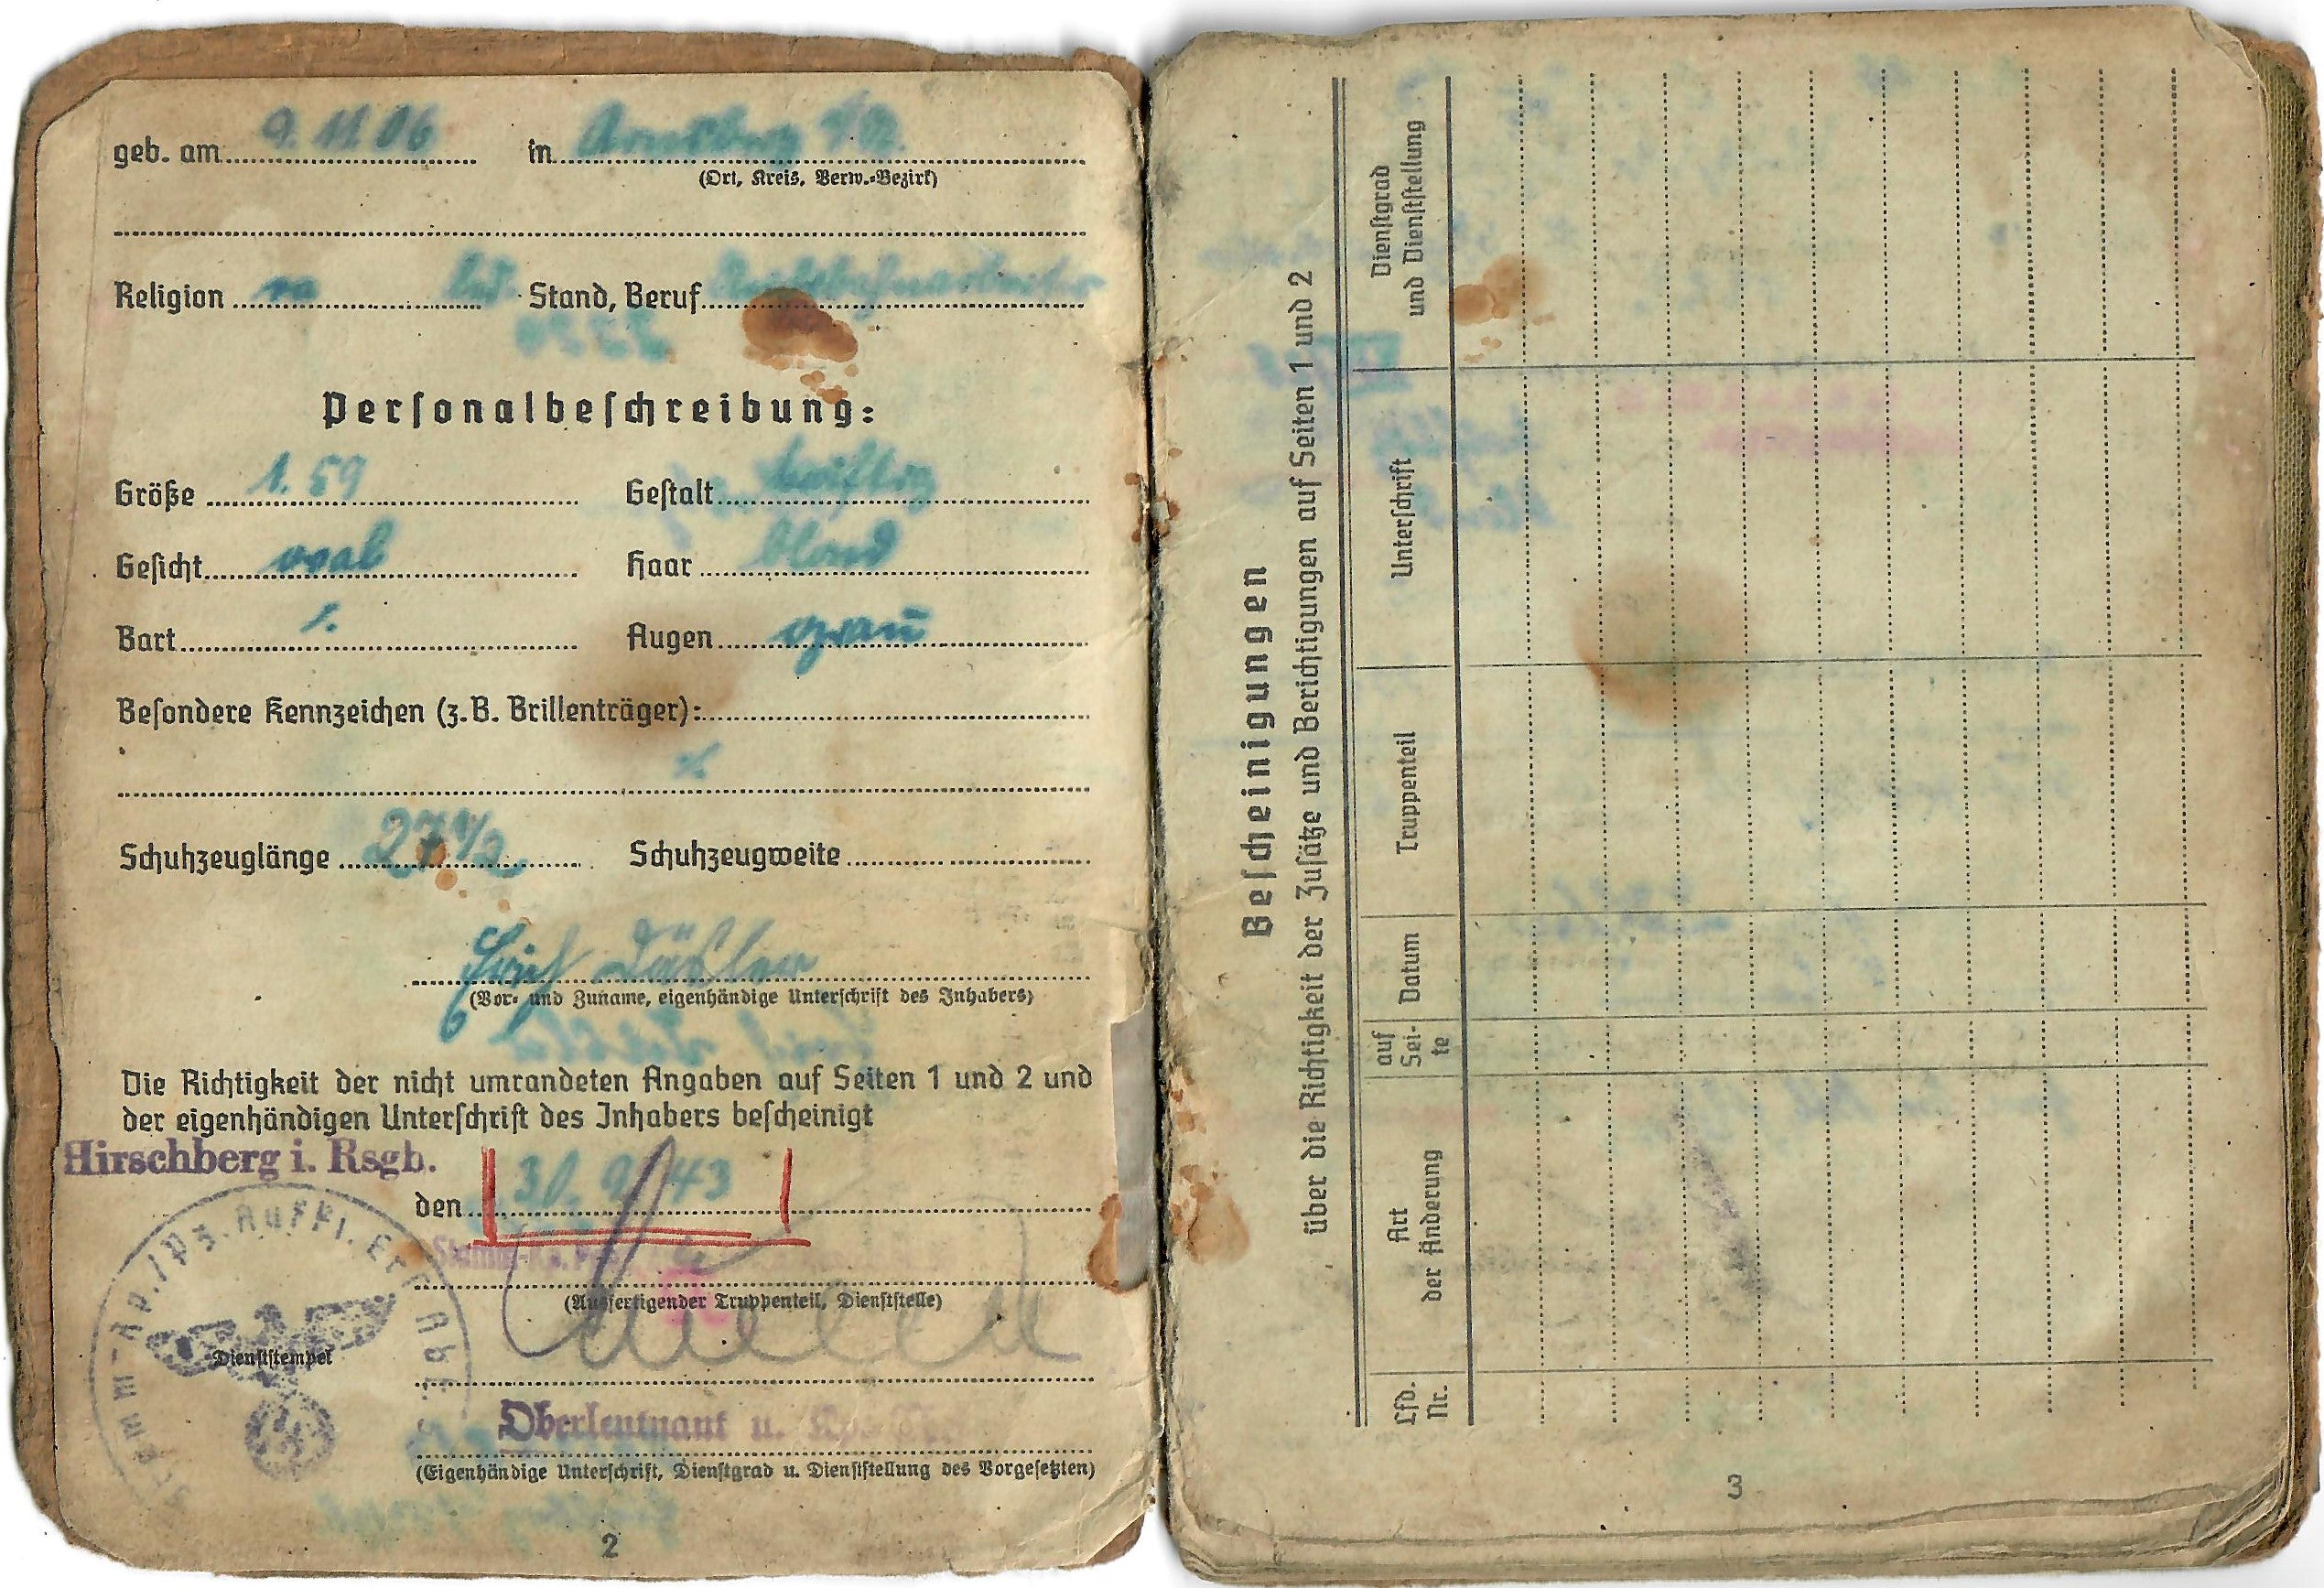 geb. am 9. 11. 06 in
(Ort, Kreis, Verw.-Bezirk)
Religion Stand, Beruf
Personalbeschreibung:
Größe 1.59 Gestalt kräftig
Gesicht oval Haar blond
Bart ⁒ Augen grau
Besondere Kennzeichen (z. B. Brillenträger):
⁒
Schuhzeuglänge 27 1/2 Schuhzeugweite
(Vor- und Zuname, eigenhändige Unterschrift des Inhabers)
Die Richtigkeit der nicht umrandeten Angaben auf Seiten 1 und 2 und
der eigenhändigen Unterschrift des Inhabers bescheinigt
Hirschberg i. Rsgb.
den 30. 9. 43
(Ausfertigender Truppenteil, Dienststelle)
Stamm-Kp./Pz. Aufkl. Ers. Abt.
Dienststempel
Oberleutnant u.
(Eigenhändige Unterschrift, Dienstgrad u. Dienststellung des Vorgesetzten)
2
Bescheinigungen
über die Richtigkeit der Zusätze und Berichtigungen auf Seiten 1 und 2
Lfd.
Nr.
Art
der Änderung
auf
Sei-
te
Datum
Truppenteil
Unterschrift
Dienstgrad
und Dienststellung
3